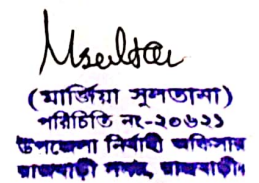 (মার্জিয়া সুলতানা)
পরিচিতি নং-২০৬২১
উপজেলা নির্বাহী অফিসার
রাজবাড়ী সদর, রাজবাড়ী।